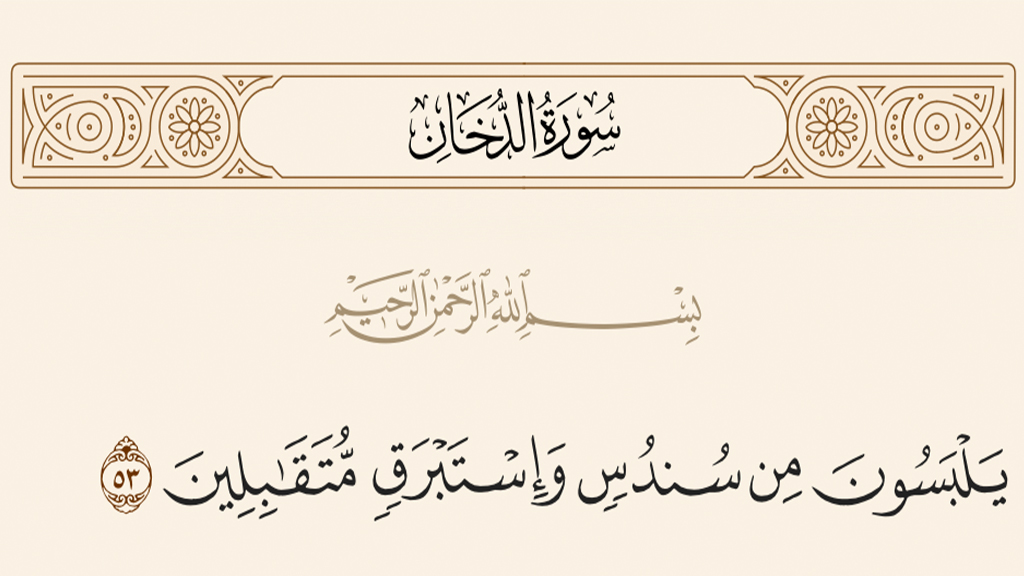 سُورَةُ الدُّخَانِ
بِسْمِ ٱللَّهِ ٱلرَّحْمَٰنِ ٱلرَّحِيمِ
يَلْبَسُونَ مِن سُندُسٍ وَإِسْتَبْرَقٍ مُّتَقَٰبِلِينَ ٥٣